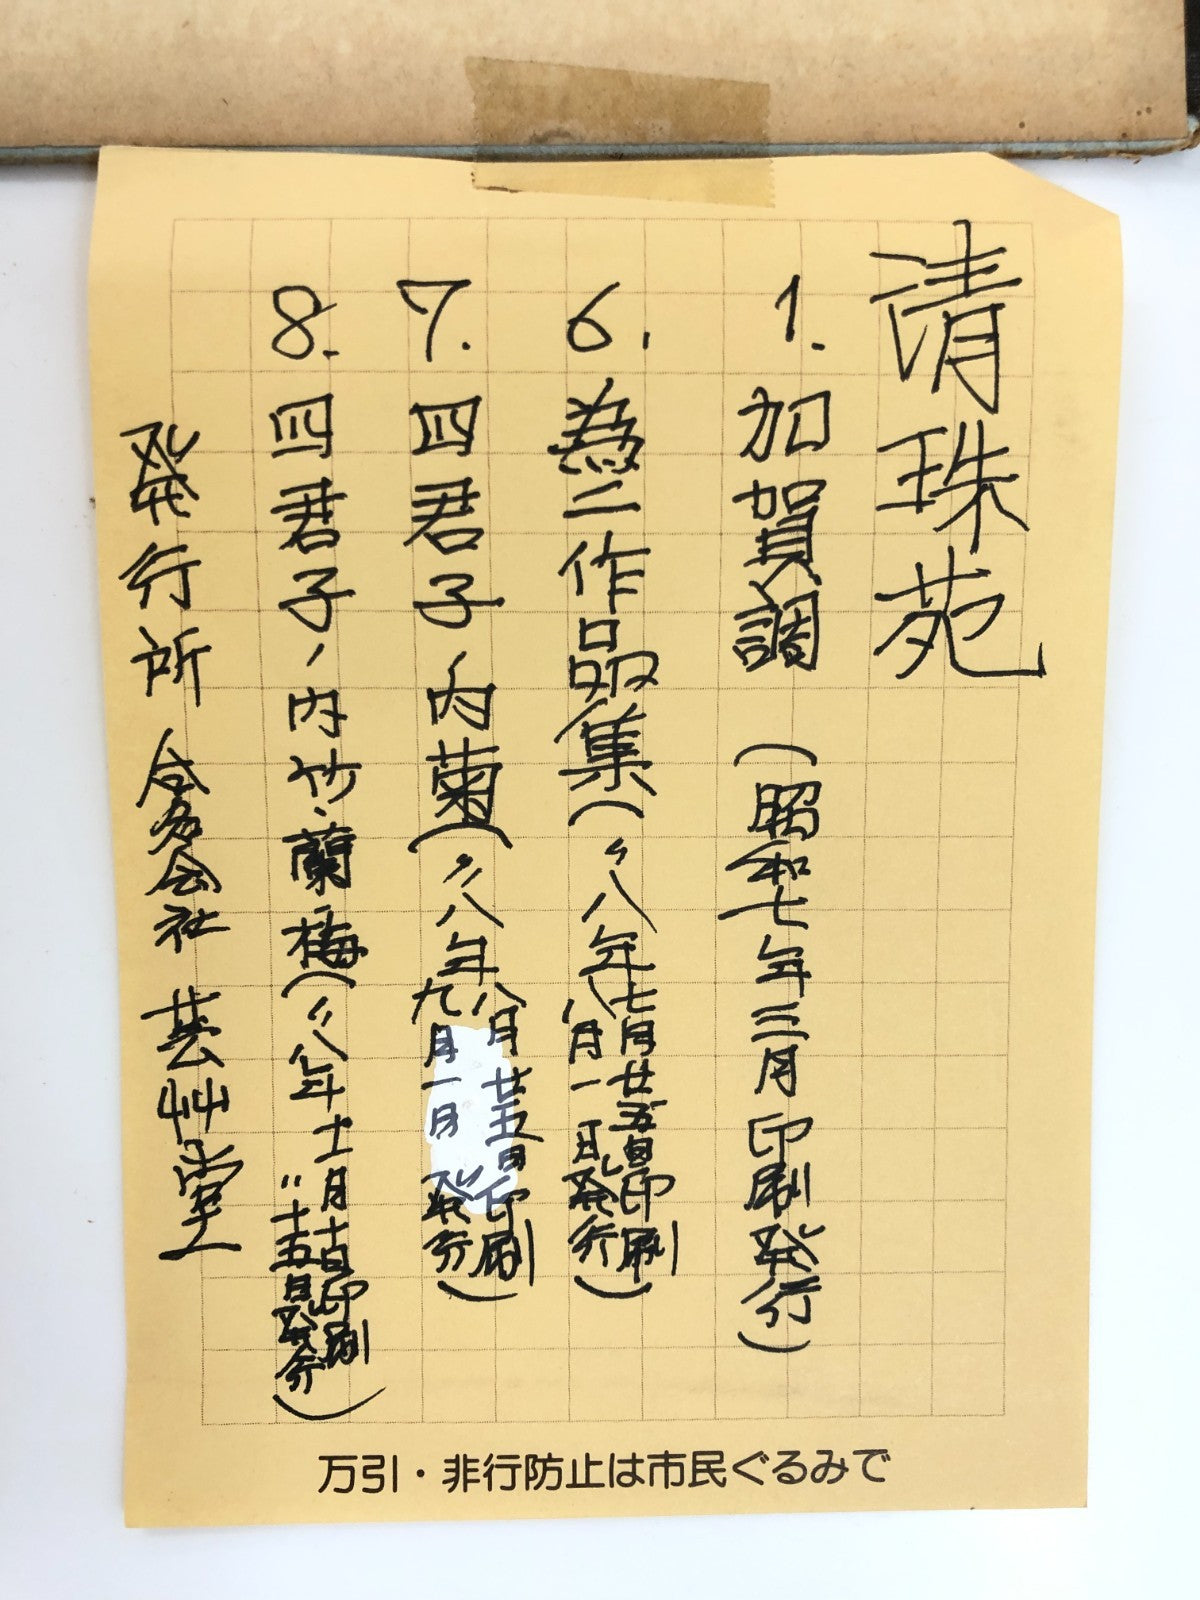 清珠苑
1. 加賀調 (昭和七年三月印刷発行)
6. 為二作品集 (〃八年七月廿五日印刷
八月一日発行)
7. 四君子ノ内菊 (〃八年八月廿五日印刷
九月一日発行)
8. 四君子ノ内竹、蘭、梅 (〃八年十一月十日印刷
〃十五日発行)
発行所 合名会社 芸艸堂
万引・非行防止は市民ぐるみで